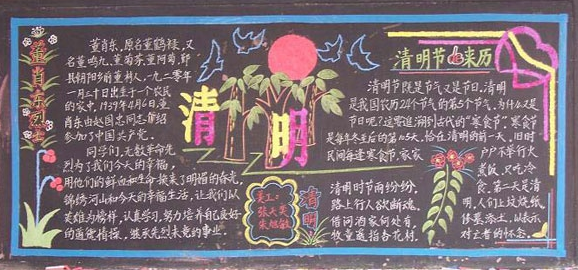 董肖东烈士
董肖东,原名董鹤禄,又
名董鸣九、董菊芬、董阿菊,郢
县朝阳乡董村人,一九二零年
一月三十日出生于一个农民
的家中,1939年4月6日,董
肖东由赵国忠同志介绍
参加了中国共产党。
同学们,无数革命先
烈为了我们今天的幸福,
用他们的鲜血和生命换来了明媚的春光,
锦绣河山和今天的幸福生活,让我们以
英雄为榜样,认真学习,努力培养自己良好
的道德情操,继承先烈未竟的事业。
清明
美工:
张大英
朱旭敏
清明
清明节的来历
清明节既是节气又是节日,清明
是我国农历24个节气的第5个节气,为什么又是
节日呢?这要追溯到古代的“寒食节”,寒食节
是每年冬至后的第105天,恰在清明的前一天,旧时
民间每逢寒食节,家家
户户不举行火
煮饭,只吃冷
食,第二天是清
明,人们上坟烧纸
修墓添土,以表示
对亡者的怀念。
清明时节雨纷纷,
路上行人欲断魂。
借问酒家何处有,
牧童遥指杏花村。